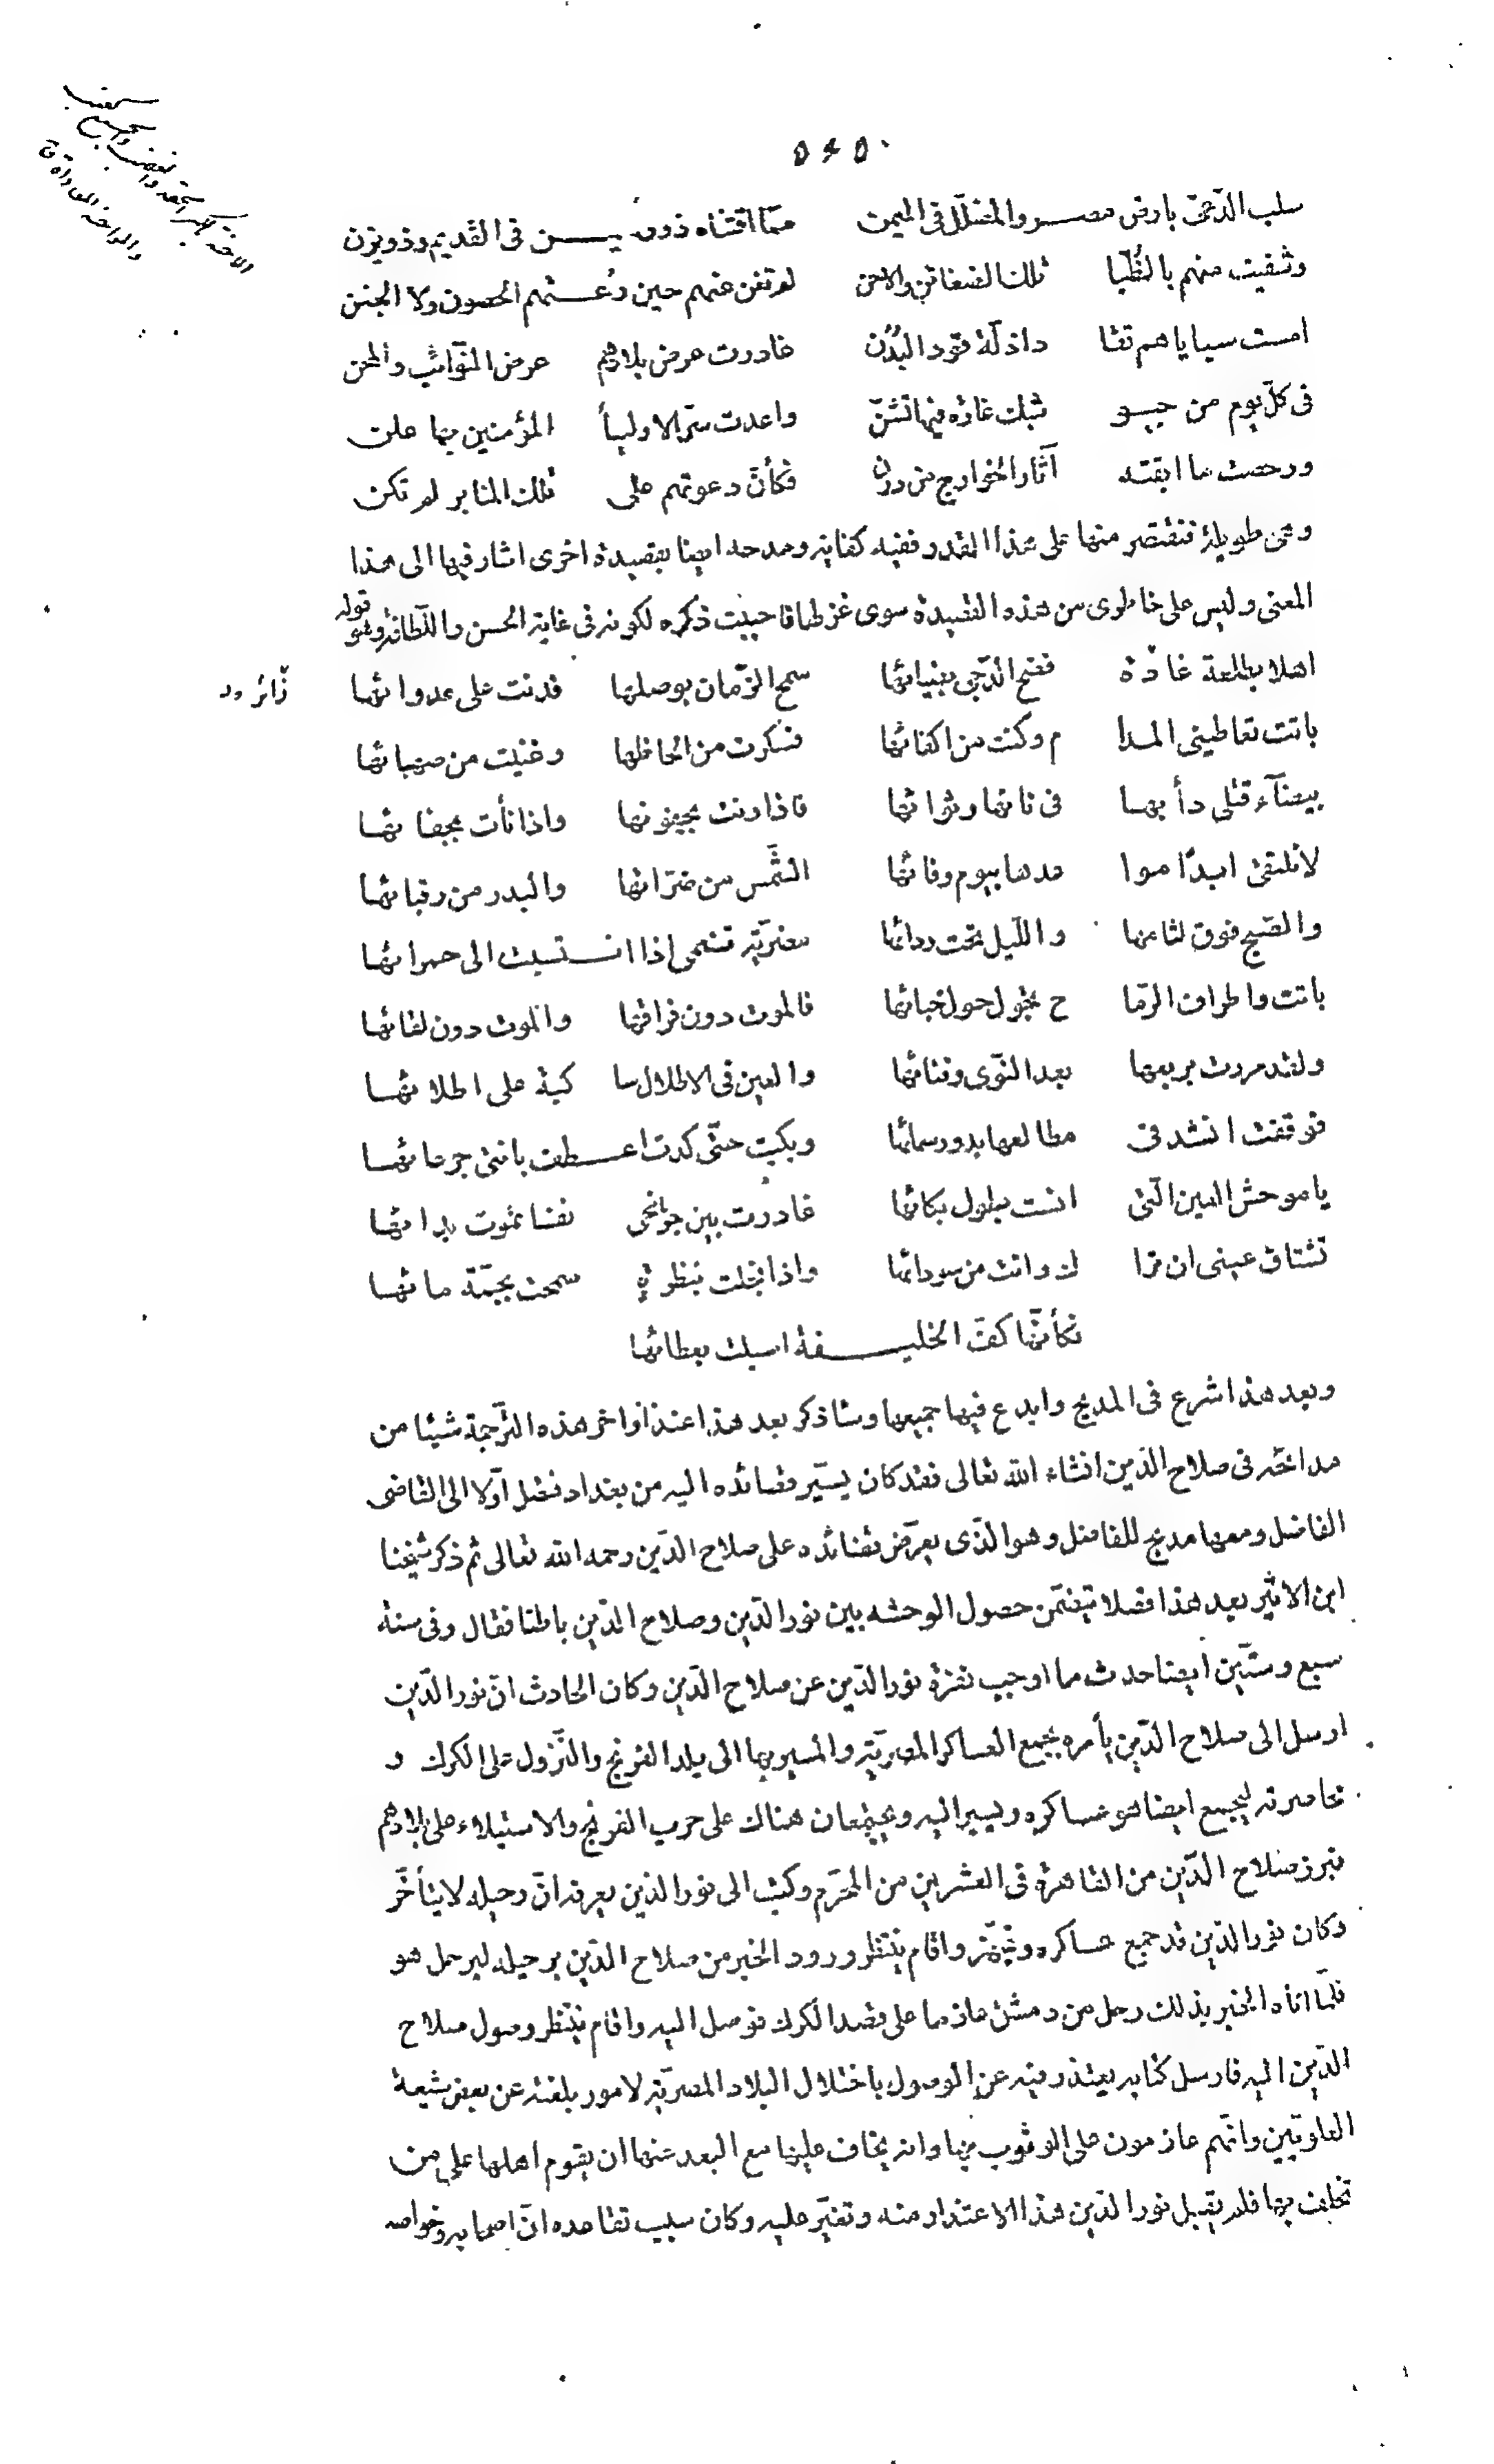 ٥٤٥
سلب الدّعيّ بارض مصر والمضلّل فى اليمن ممّا اقتناه ذو يزن فى القديم وذو يزن
وشفيت منهم بالظُّبا تلك الضغائن والاحن لم تغن عنهم حين رُعتهم الحصون ولا الجنن
امست سباياهم تقا داذلّة قود البُدُن غادرت عرض بلادهم عرض النّوائب والمحن
فى كلّ يوم من جيو شك غارة فيها تشنّ واعدت سرّ الاوليأ المؤمنين بها علن
ورحضت ما ابقته آثار الخوارج من درن فكأنّ دعوتهم على تلك المنابر لم تكن
وهى طويلة فنقتصر منها على هذا القدر ففيه كفاية ومدحه ايضا بقصيدة اخرى اشار فيها الى هذا
المعنى وليس على خاطرى من هذه القصيدة سوى غزلها فاحببت ذكره لكونه فى غاية الحسن واللّطافة وهو قوله
اهلا بطلعة غادة فضح الدّجى بضيائها سمح الزّمان بوصلها فدنت على عدوائها
باتت تعاطينى المدا م وكنت من اكفائها فسكرت من الحاظها وغنيت من صهبائها
بيضآء قتلى دأبها فى نائها وثوائها فاذا دنت بجفونها واذا نأت بجفائها
لا نلتقى ابدًا موا عدها بيوم وفائها الشّمس من ضرّاتها والبدر من رقبائها
والصّبح فوق لثامها واللّيل تحت ردائها مضريّة تنمى اذا انتسبت الى حمرائها
باتت واطراف الرّما ح تجول حول خبائها فالموت دون فراقها والموت دون لقائها
ولقد مررت بربعها بعد النّوى وفنائها والعين فى الاطلال سا كبة على اطلائها
فوقفت انشد فى مطالعها بدور سمائها وبكيت حتّى كدت اعطف بانتى جرعائها
يا موحش العين الّتى انست بطول بكائها غادرت بين جوانحى نفسا تموت بدائها
تشتاق عينى ان ترا ك وانت من سودائها واذا بخلت بنظرة سمحت بجمّة مائها
فكأنّها كفّ الخليفة اسبلت بعطائها
وبعد هذا شرع فى المديح وابدع فيها جميعها وسأذكر بعد هذا عند اواخر هذه التّرجمة شيئا من
مدائحه فى صلاح الدّين انشاء الله تعالى فقد كان يسيّر قصائده اليه من بغداد فتصل اوّلا الى القاضى
الفاضل ومعها مديح للفاضل وهو الّذى يعرض قصائده على صلاح الدّين رحمه الله تعالى ثم ذكر شيخنا
ابن الاثير بعد هذا فصلا يتضمّن حصول الوحشه بين نور الدّين وصلاح الدّين باطنا فقال وفى سنة
سبع وستّين ايضا حدث ما اوجب نفرة نور الدّين عن صلاح الدّين وكان الحادث انّ نور الدّين
ارسل الى صلاح الدّين يأمره بجمع العساكر المصريّة والمسير بها الى بلد الفرنج والنّزول على الكرك و
محاصرته ليجمع ايضا هو عساكره ويسير اليه ويجتمعان هناك على حرب الفرنج والاستيلاء على بلادهم
فبرز صلاح الدّين من القاهرة فى العشرين من المحرّم وكتب الى نور الدّين يعرفه انّ رحيله لا يتأخّر
وكان نور الدّين قد جمع عساكره وتجهّز واقام ينتظر ورود الخبر من صلاح الدّين برحيله ليرحل هو
فلمّا اتاه الخبر بذلك رحل من دمشق عازما على قصد الكرك فوصل اليه واقام ينتظر وصول صلاح
الدّين اليه فارسل كتابه يعتذر فيه عن الوصول باختلال البلاد المصريّة لامور بلغته عن بعض شيعة
العلويّين وانّهم عازمون على الوثوب بها وانه يخاف عليها مع البعد عنها ان يقوم اهلها على من
تخلف بها فلم يقبل نور الدّين هذا الاعتذار منه وتغيّر عليه وكان سبب تقاعده انّ اصحابه وخواصه